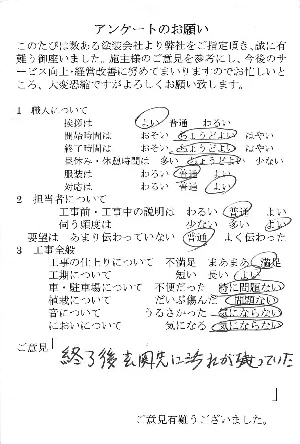 アンケートのお願い
このたびは数ある塗装会社より弊社をご指定頂き、誠に有
難う御座いました。施主様のご意見を参考にし、今後のサ
ービス向上・経営改善に努めてまいりますのでお忙しいと
ころ、大変恐縮ですがよろしくお願い致します。
1 職人について
挨拶は よい 普通 わるい
開始時間は おそい ちょうどよい はやい
終了時間は おそい ちょうどよい はやい
昼休み・休憩時間は 多い ちょうどよい 少ない
服装は わるい 普通 よい
対応は わるい 普通 よい
2 担当者について
工事前・工事中の説明は わるい 普通 よい
伺う頻度は 少ない 多い よい
要望は あまり伝わっていない 普通 よく伝わった
3 工事全般
工事の仕上りについて 不満足 まあまあ 満足
工期について 短い 長い よい
車・駐車場について 不便だった 特に問題ない
植栽について だいぶ傷んだ 問題ない
音について うるさかった 気にならない
においについて 気になる 気にならない
ご意見「
終了後玄関先に汚れが残っていた
」
ご意見有難うございました。